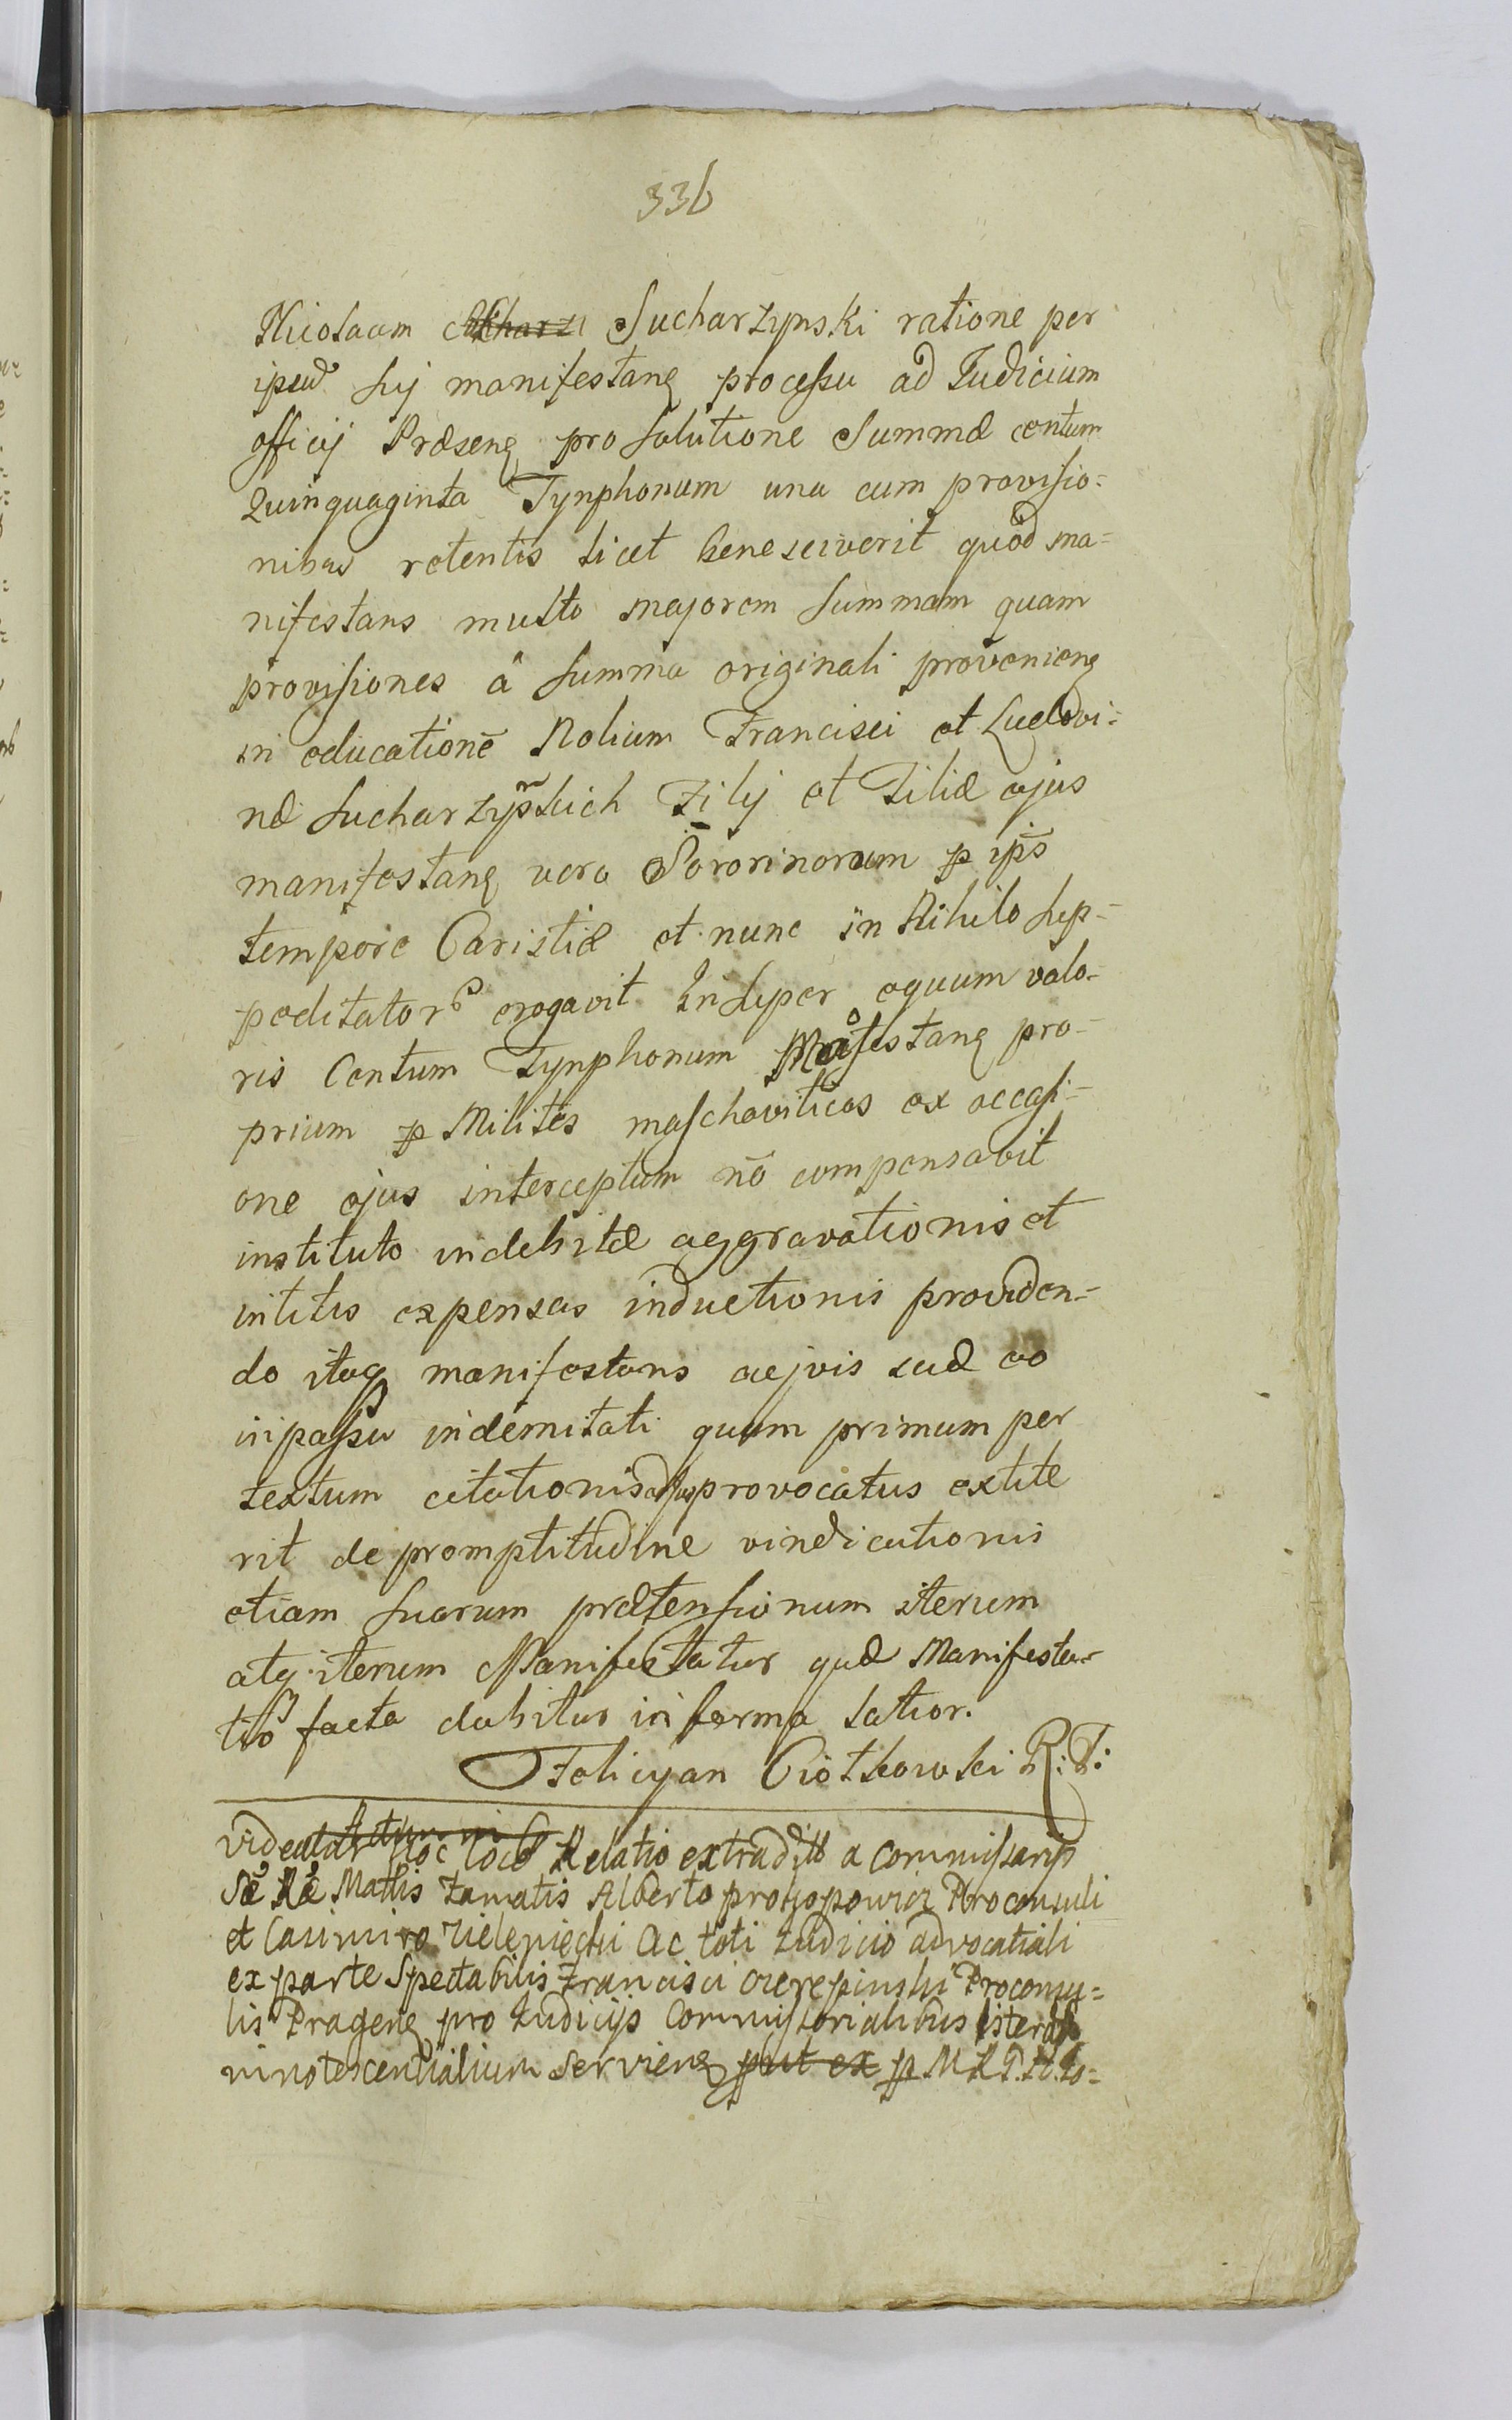 336
Nicolaum Sucharzynski ratione per
ipsu᷉ sui manifestanꝭ processu ad Judicium
officij Præsenꝭ pro solutione Summæ centum
Quinquaginta Tynphonum una cum provisio=
nibus retentis licet bene sciverit quod ma=
nifestans multo majorem summam quam
provisiones â summa originali provenienꝭ
in educationē Nolium Francisci et Ludovi=
næ Sucharzynskich Filij et Filiæ ejus
manifestanꝭ vero Sororinorum ꝑ ip̄s
tempore Caristiæ et nunc in Nihilo sup=
peditator erogavit Insuper equum valo=
ris Centum Tynphonum Mafestanꝭ pro=
prium ꝑ Milites moschoviticos ex occasi=
one ejus interceptum nō compensavit
instituto indebitæ aggravationis et
inlitis expensas inductionis providen=
do itaqꝫ manifestans aejvis suæ eo
in passu indemnitati quam primum per
textum citationis provocatus extite
rit de promptitudine vindicationis
etiam suarum prætensionum iterum
atqꝫ iterum Manifestatur quæ Manifesta=
tio facta dabitur in forma latior.
Felicyan Ciotkowski R: J:
Videatur hoc loco Relatio extradit a Commissarijs
Sæ Ræ Mattis Zamatis Alberto protzopowicz Proconsuli
et Casimiro Zielepiecki Ac toti Judicio advocatiali
ex parte Spectabilis Francisci Czerepinski Proconsu=
lis Pragenꝭ pro Judicijs Commissorialibus literar
innotescentialium Servienꝭ prut ex ꝑ M R P. H. Jo=